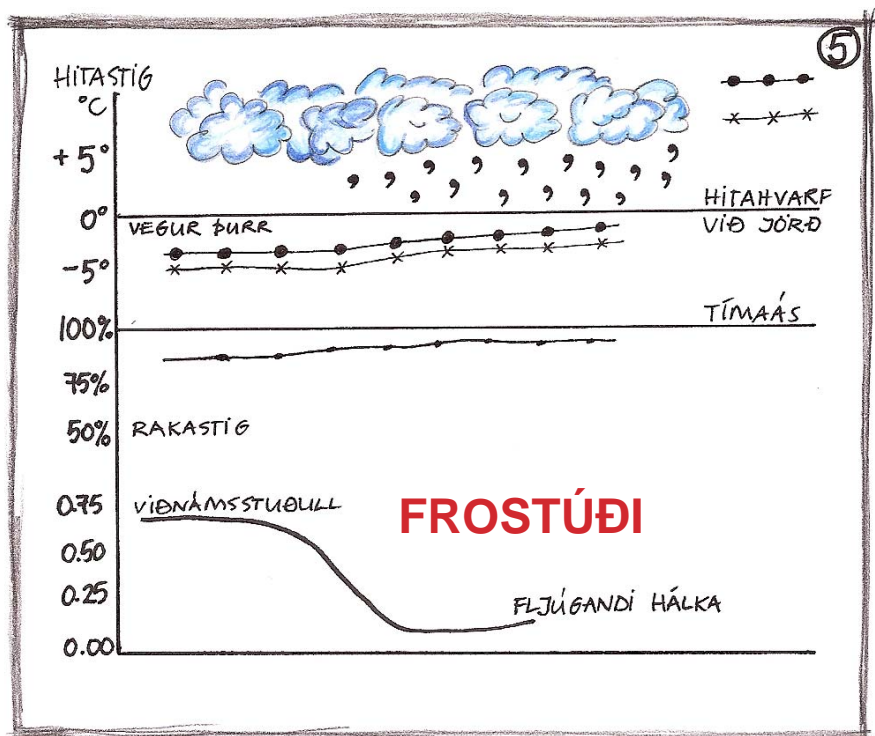 5
HITASTIG
°C
+5°
0°
-5°
HITAHVARF
VIÐ JÖRÐ
VEGUR ÞURR
TÍMAÁS
100%
75%
50%
RAKASTIG
0.75
0.50
0.25
0.00
VIÐNÁMSSTUÐULL
FROSTÚÐI
FLJÚGANDI HÁLKA